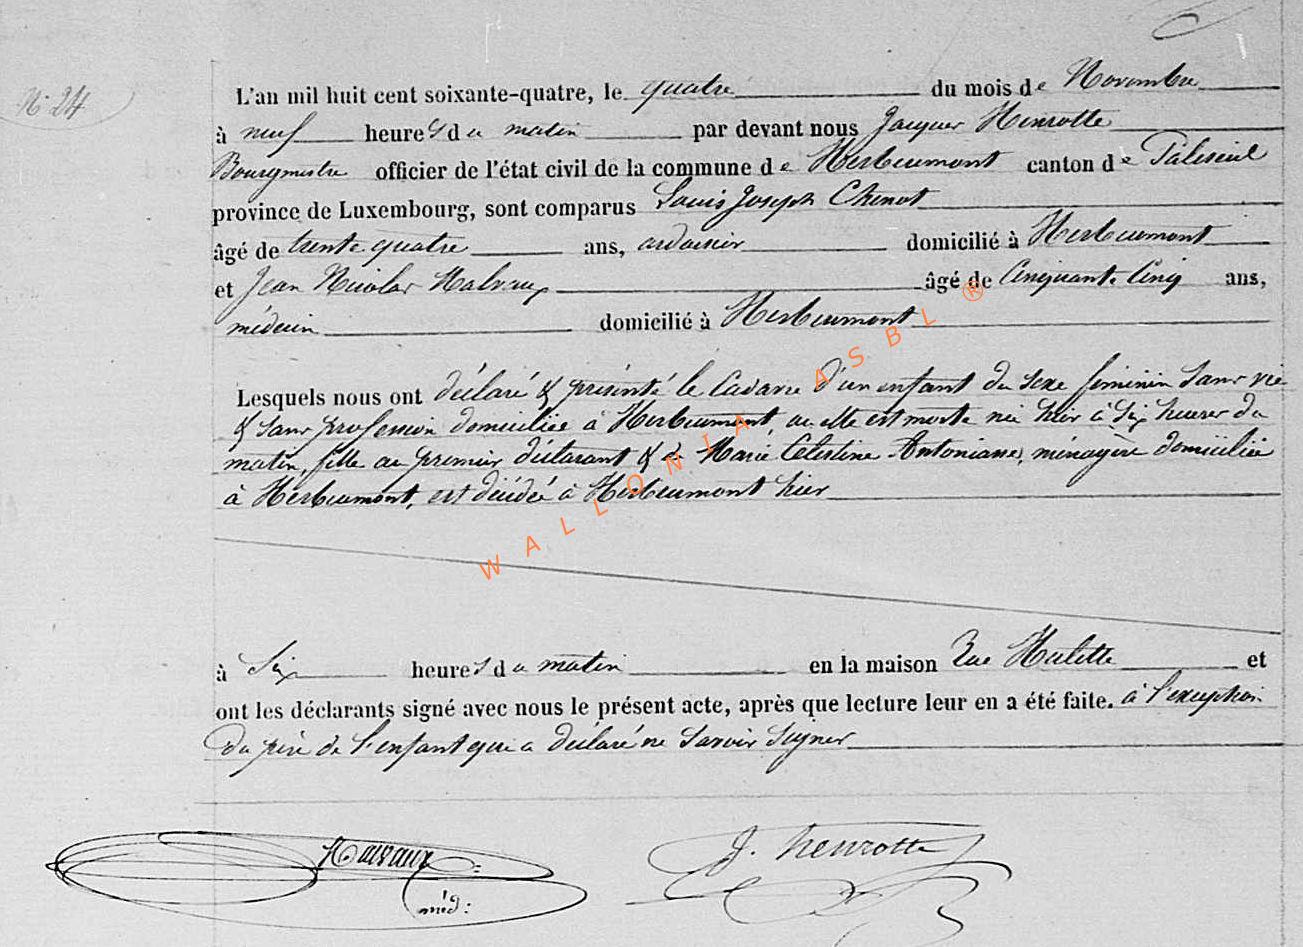 N° 24
L'an mil huit cent soixante-quatre, le quatre du mois de Novembre
à neuf heures du matin par devant nous Jacques Henrotte
Bourgmestre officier de l'état civil de la commune de Herbeumont canton de Paliseul
province de Luxembourg, sont comparus Louis Joseph Chenot
âgé de trente quatre ans, ardoisier domicilié à Herbeumont
et Jean Nicolas Halvaux âgé de Cinquante Cinq ans,
médecin domicilié à Herbeumont
Lesquels nous ont déclaré & présenté le Cadavre d'un enfant du sexe féminin sans vie
& sans profession domiciliée à Herbeumont, où elle est morte née hier à Six heures du
matin, fille du premier déclarant & de Marie Célestine Antoniane, ménagère domiciliée
à Herbeumont, est décédée à Herbeumont hier
à Six heures du matin en la maison Rue Hulette et
ont les déclarants signé avec nous le présent acte, après que lecture leur en a été faite. à l'exception
du père de l'enfant qui a déclaré ne savoir signer
Halvaux J. henrotte
méd:
WALLONIA ASBL ®